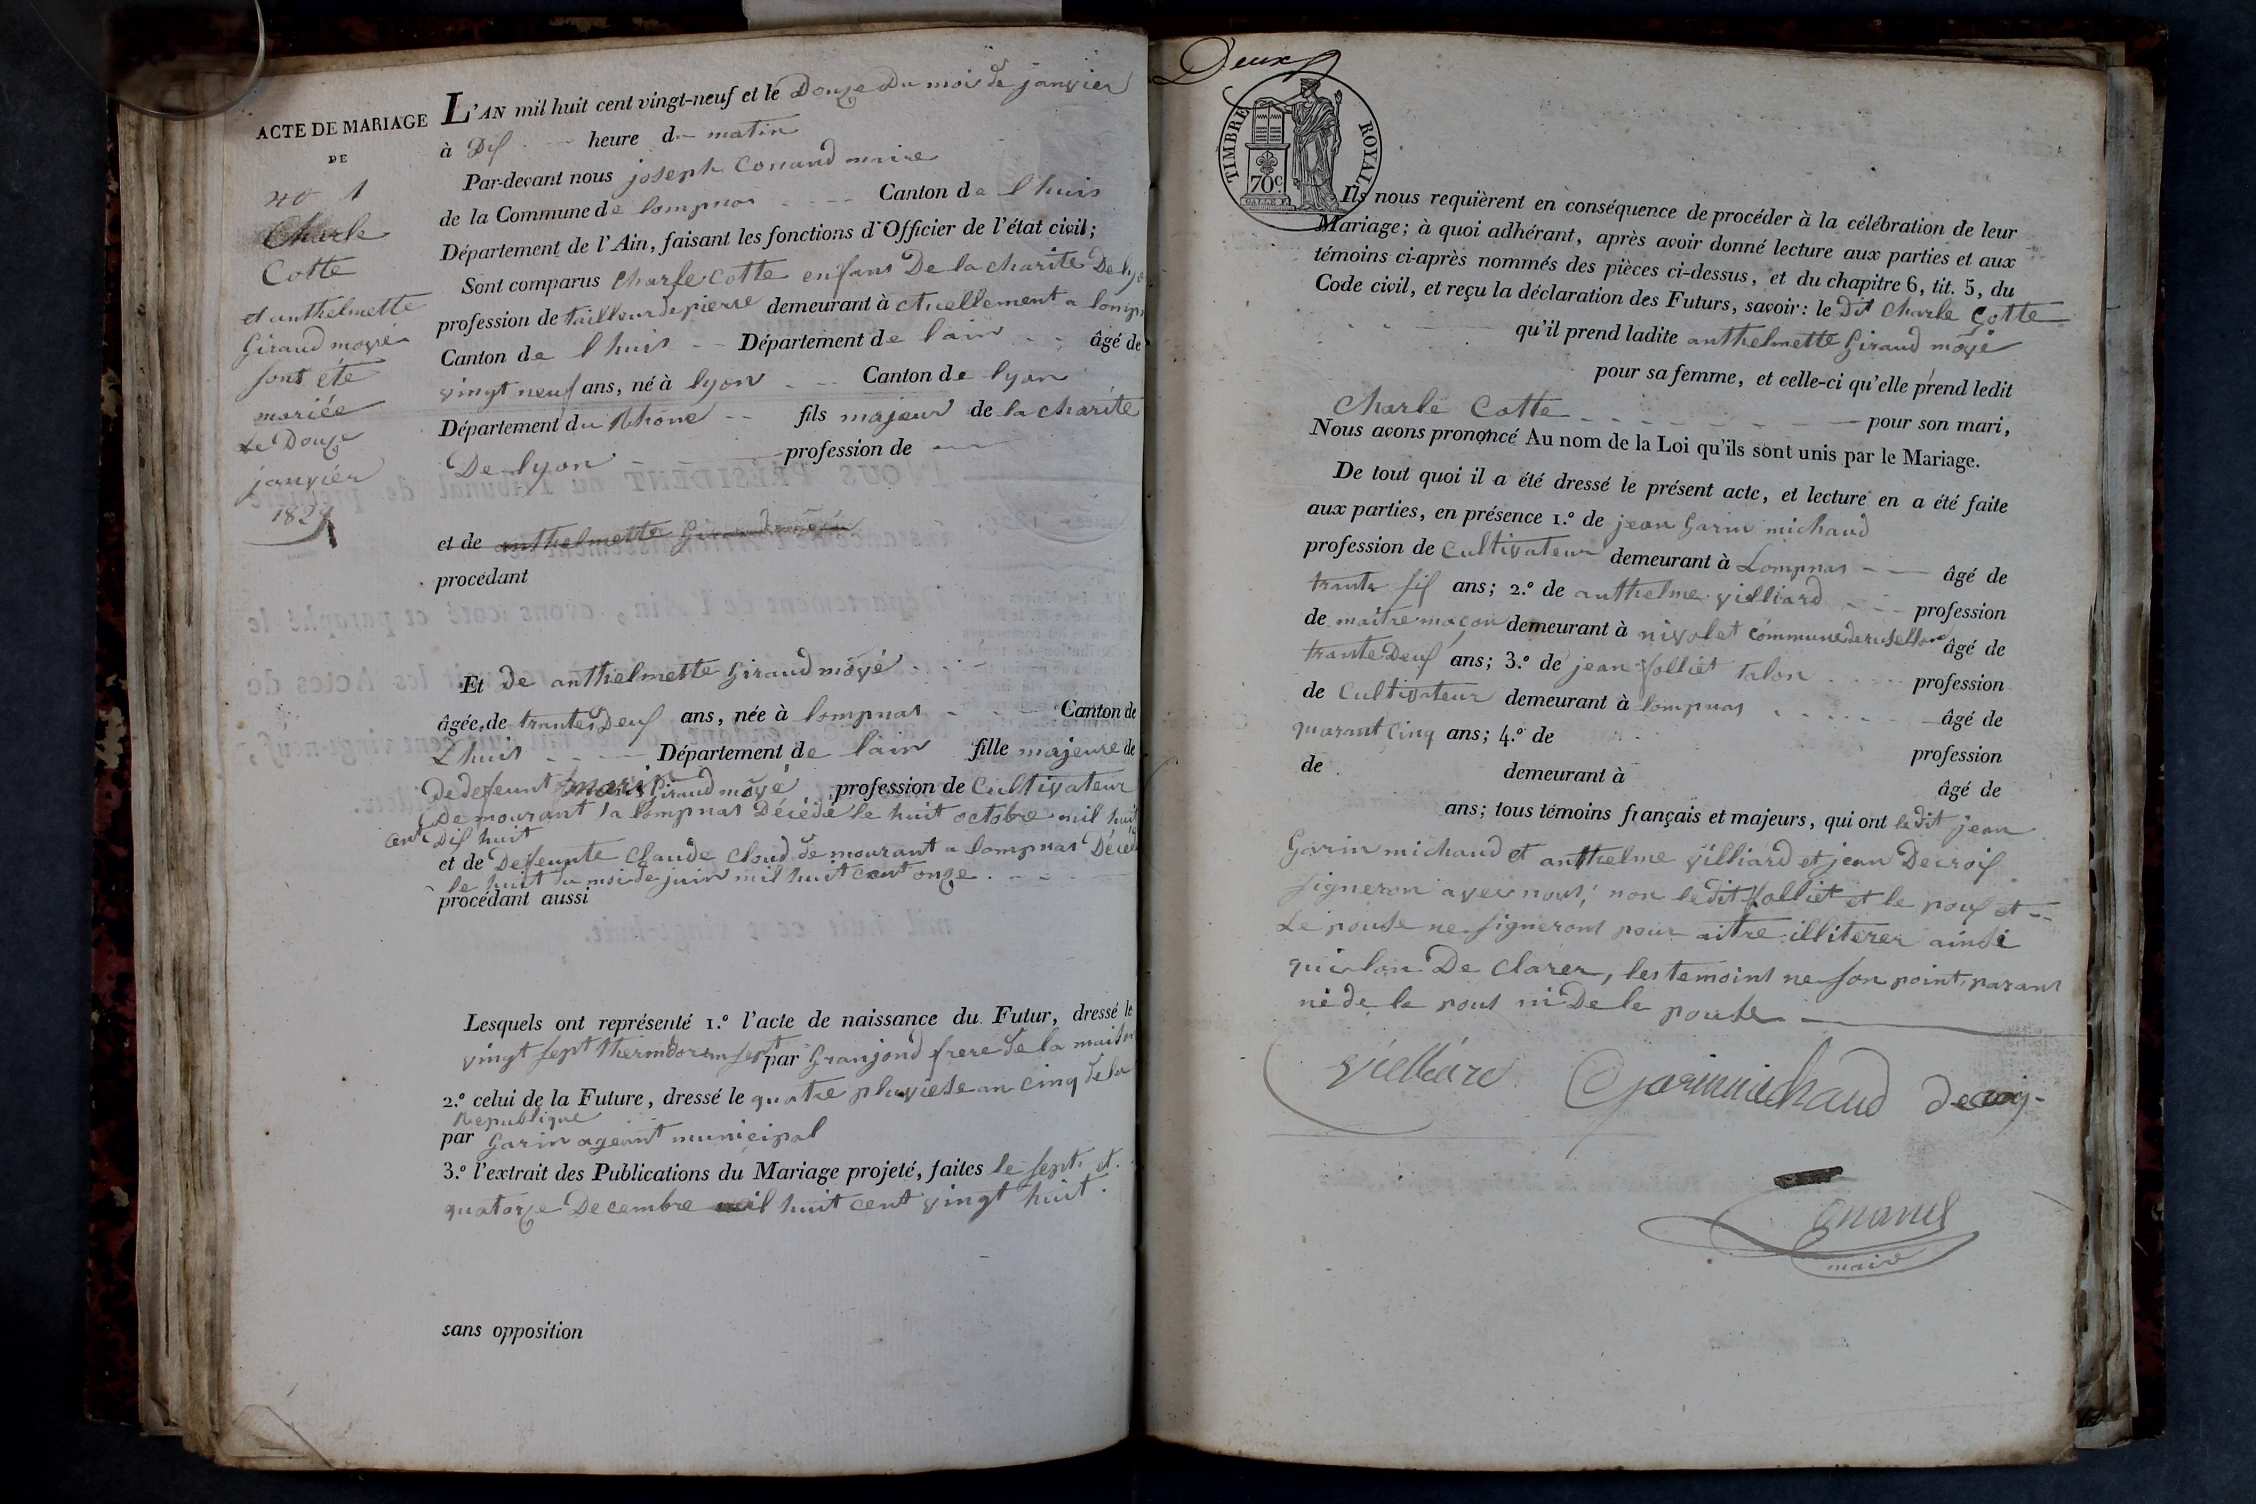 ACTE DE MARIAGE
DE
no 1
Charle
Cotte
et anthelmette
Giraud moyé
sont été
mariée
Le Douze
janvier
1829
L'AN mil huit cent vingt-neuf et le Douze Du mois de janvier
à Dix heure du matin
Par-devant nous joseph Conand maire
de la Commune de lompnas Canton de l huis
Département de l'Ain, faisant les fonctions d'Officier de l'état civil;
Sont comparus Charle Cotte enfans De la charité De lyon
profession de tailleur de pierre demeurant à ctuellement a lompn
Canton de l huis Département de lain âgé de
vingt neuf ans, né à lyon Canton de lyon
Département du Rhône fils majeur de la charité
De lyon profession de
et de anthelmette Giraud moyé
procédant
Et de anthelmette Giraud moyé
âgée de trante Deux ans, née à lompnas Canton de
L huis Département de lain fille majeure de
De defeunt Giraud moyé profession de Cultivateur
De mourant a lompnas Décédé le huit octobre mil huit
cent Dix huit
et de Defeunte Claude Cloud demourant a lompnas Décéd
le huit du mois de juin mil huit cent onze
procédant aussi
Lesquels ont représenté 1.º l'acte de naissance du Futur, dressé le
vingt sept thermidor an sept par Granjond frere de la maison
2.º celui de la Future, dressé le quatre pluviese an cinq de la
Republique
par Garin agent municipal
3.º l'extrait des Publications du Mariage projeté, faites le sept et
quatorze Decembre mil huit cent vingt huit.
sans opposition
Deux
TIMBRE ROYAL
70c.
Ils nous requièrent en conséquence de procéder à la célébration de leur
Mariage; à quoi adhérant, après avoir donné lecture aux parties et aux
témoins ci-après nommés des pièces ci-dessus, et du chapitre 6, tit. 5, du
Code civil, et reçu la déclaration des Futurs, savoir: le Dit Charle Cotte
qu'il prend ladite anthelmette Giraud moyé
pour sa femme, et celle-ci qu'elle prend ledit
Charle Cotte pour son mari,
Nous avons prononcé Au nom de la Loi qu'ils sont unis par le Mariage.
De tout quoi il a été dressé le présent acte, et lecture en a été faite
aux parties, en présence 1.º de jean Garin michaud
profession de Cultivateur demeurant à Lompnas âgé de
trante six ans; 2.º de anthelme villiard profession
de maitre maçon demeurant à nivolet commune de âgé de
trante Deux ans; 3.º de jean folliet talon profession
de Cultivateur demeurant à lompnas âgé de
quarant cinq ans; 4.º de
de demeurant à profession
âgé de
ans; tous témoins français et majeurs, qui ont ledit jean
Garin michaud et anthelme villiard et jean Decroix
signeron avec nous, non ledit folliet et le poux et
Le pouse ne signeront pour aitre illiterer ainsi
qui lon De clarer, les temoins ne son point parant
ni de le pous ni De le pouse
Garinmichaud
Conand
maire